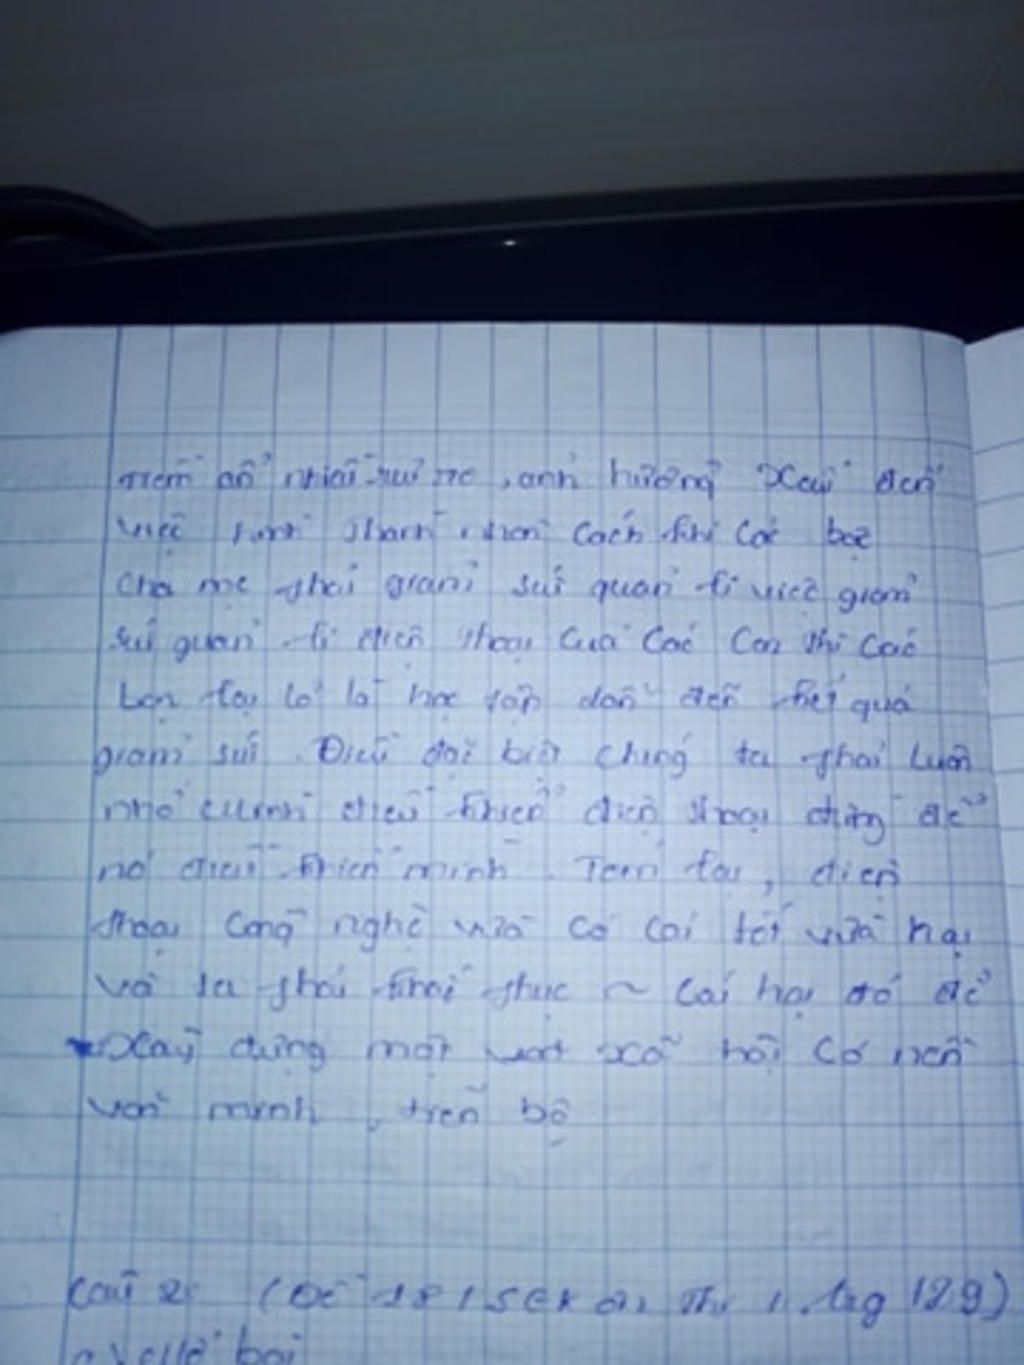 tiềm ẩn nhiều rủi ro, ảnh hưởng xấu đến
việc hình thành nhân cách khi các bậc
cha mẹ phải giảm sút quản lí việc giảm
sút quản lí điện thoại của các con thì các
bạn lại lơ là học tập dẫn đến kết quả
giảm sút. Điều đặc biệt chúng ta phải luôn
nhớ mình điều khiển điện thoại đừng để
nó điều khiển mình. Tóm lại, điện
thoại công nghệ vừa có cái tốt vừa hại
và ta phải khắc phục ~ cái hại đó để
xây dựng một xã hội có nền
văn minh, tiến bộ
Câu 2: (Đề 18 / SGK ôn thi, trg 129)
bài